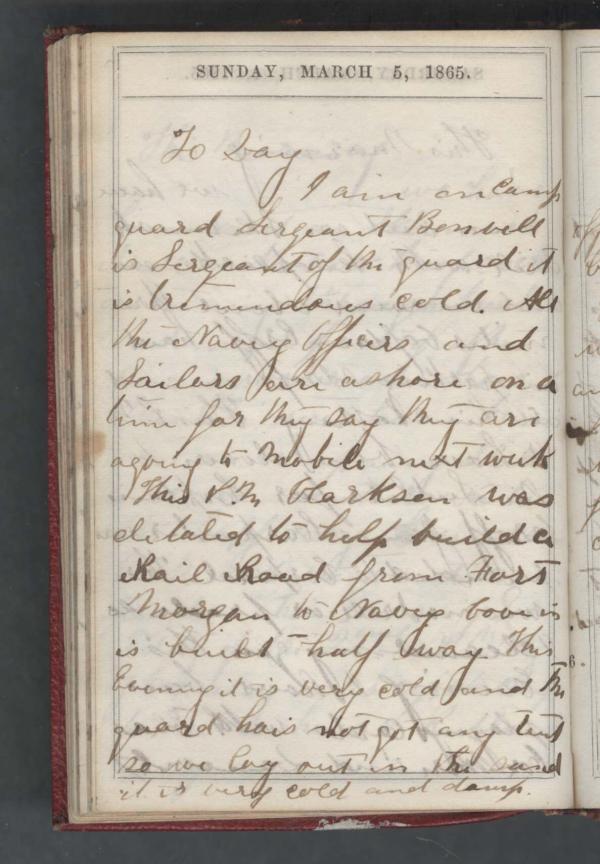 SUNDAY, MARCH 5, 1865.
To Day
I am on Camp
guard Sergeant Bonvill
is Sergeant of the guard it
is tremendous cold. All
the Navey Officirs and
Sailors are ashore on a
time for they say they are
agoing to Mobile next week
This P.M. Clarksen was
detated to help build a
Rail Road from Fort
Morgan to Navey Cove it
is built half way This
Evening it is very cold and the
guard hais not got any tent
so we lay out in the sand
it is very cold and damp.